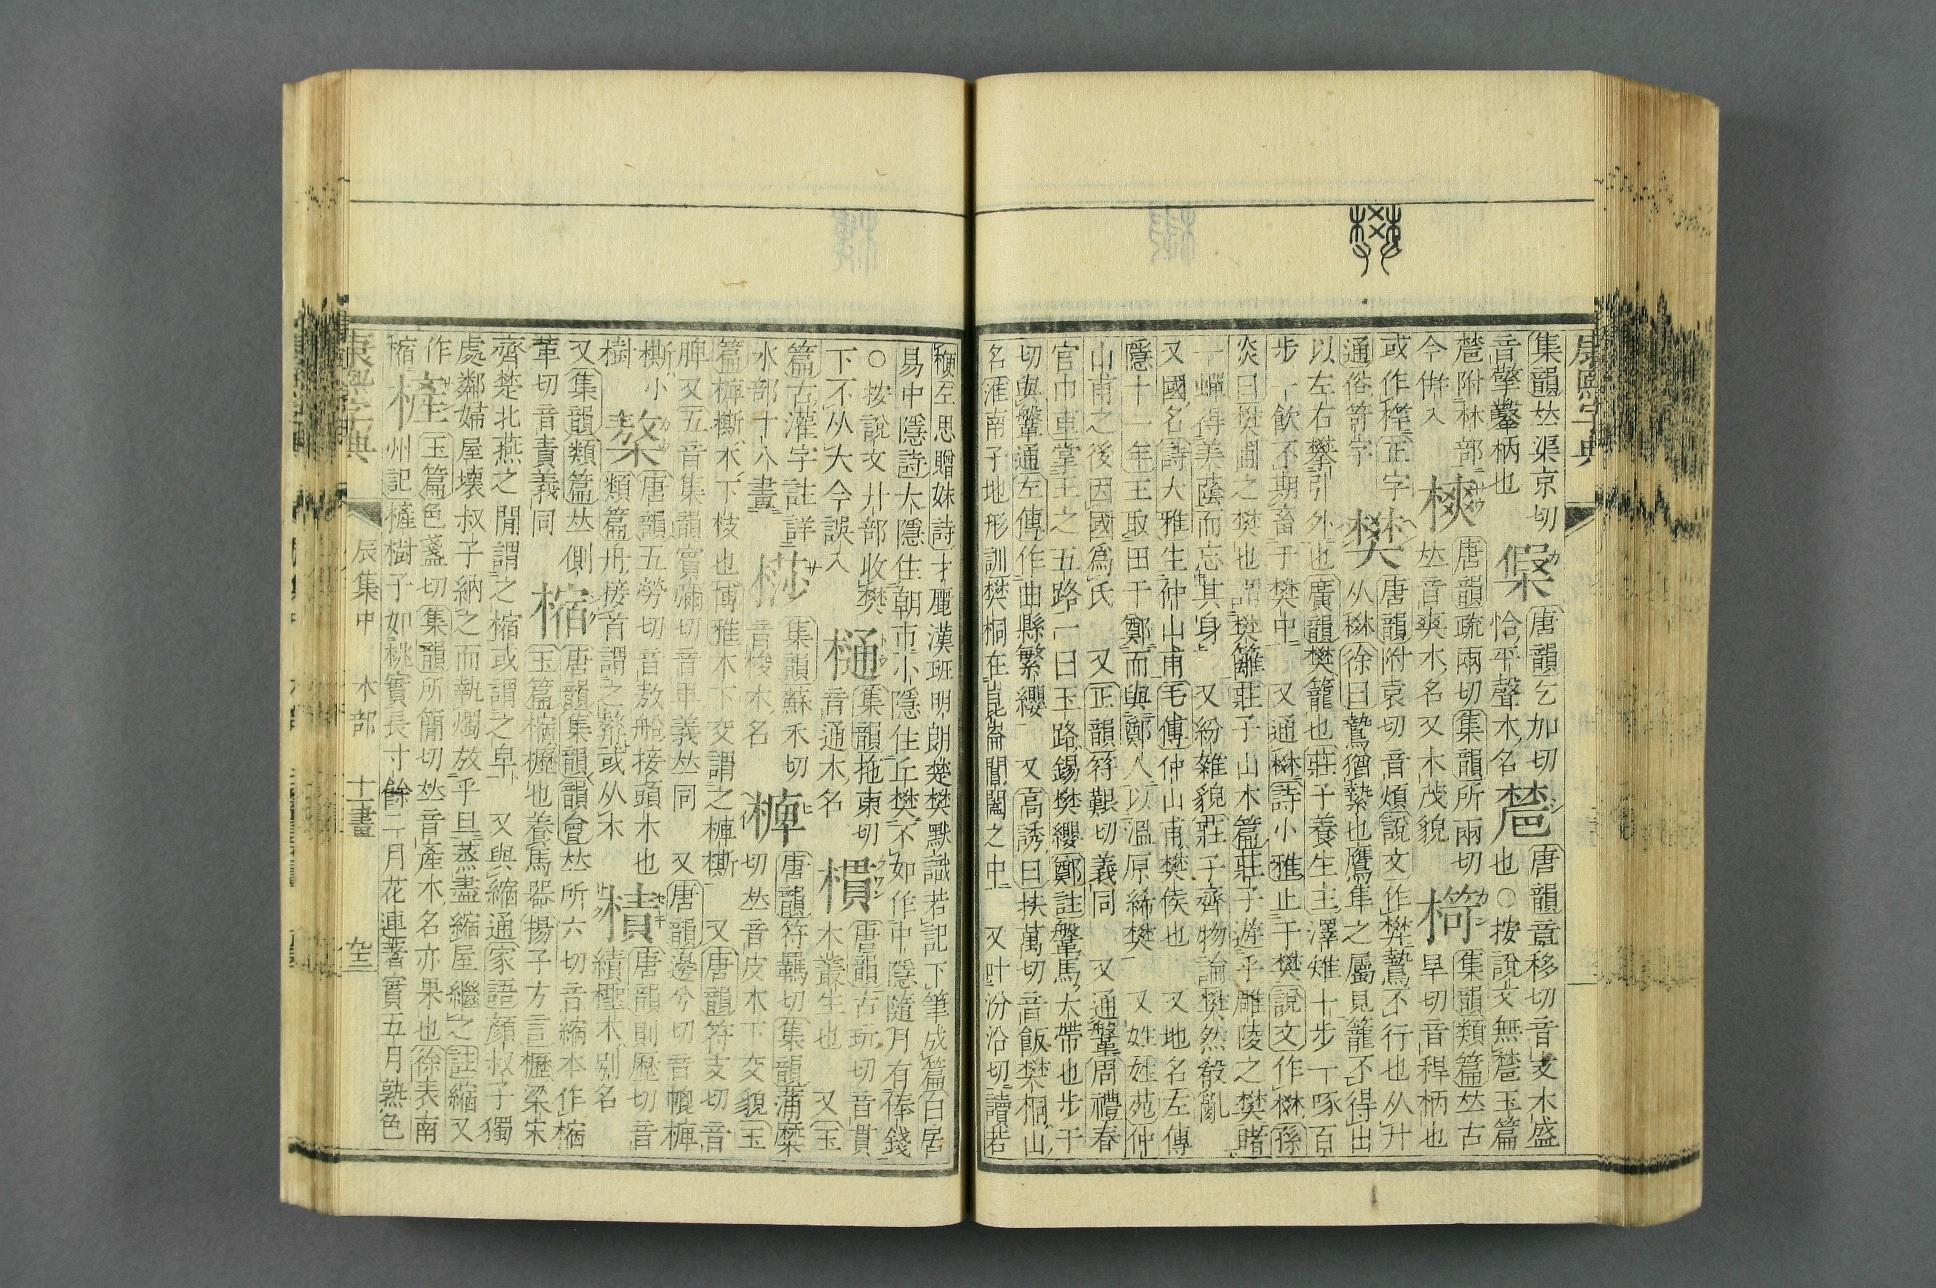 康熙字典
集韻𠀤渠京切
音擎𣝗柄也
樃唐韻乞加切
恰平聲木名
唐韻音移切音支木盛
也○按說文無 玉篇
附林部
今倂入
樉𠀤音爽木名又木茂貌
唐韻疏兩切集韻所兩切
集韻類篇𠀤古
旱切音稈柄也
或作桿正字
通俗笴字
樊
唐韻附袁切音煩說文作樊鷙不行也从廾
从棥徐曰鷙猶縶也鷹隼之屬見籠不得出
以左右樊引外也廣韻樊籠也莊子養生主澤雉十步一啄百
步一飮不期畜于樊中 又通棥詩小雅止于樊說文作棥孫
炎曰樊圃之樊也謂樊籬莊子山木篇莊子遊乎雕陵之樊睹
一蟬得美蔭而忘其身 又紛雜貌莊子齊物論樊然殽亂
又國名詩大雅生仲山甫毛傳仲山甫樊侯也 又地名左傳
隱十一年王取田于鄭而與鄭人以溫原絺樊 又姓姓苑仲
山甫之後因國爲氏 又正韻符艱切義同 又通鞶周禮春
官巾車掌王之五路一曰玉路錫樊纓鄭註鞶馬大帶也步干
切與鞶通左傳作曲縣繁纓 又高誘曰扶萬切音飯樊桐山
名淮南子地形訓樊桐在崑崙閶闔之中 又叶汾沿切讀若
楩左思贈妹詩才麗漢班明朗楚樊默識若記下筆成篇白居
易中隱詩大隱住朝市小隱住丘樊不如作中隱隨月有俸錢
○按說文廾部收樊
下不从大今誤入
樋
集韻拖東切
音通木名
樌
唐韻古玩切音貫
木叢生也 又玉
篇古灌字註詳
水部十八畫
桫
集韻蘇禾切
音梭木名
椑
唐韻符羈切集韻蒲糜
切𠀤音皮木下交貌玉
篇椑㯕木下枝也博雅木下交謂之椑㯕 又唐韻符支切音
脾又五音集韻賓彌切音卑義𠀤同 又唐韻邊兮切音𥱼椑
㯕小
樹
唐韻五勞切音敖船接頭木也
類篇舟接首謂之𣘮或从木
樍
唐韻則歷切音
績樫木別名
又集韻類篇𠀤側
革切音責義同
樎
唐韻集韻韻會𠀤所六切音縮本作樎
玉篇樎櫪也養馬器揚子方言櫪梁宋
齊楚北燕之閒謂之樎或謂之皁 又與縮通家語顏叔子獨
處鄰婦屋壞叔子納之而執燭放乎旦蒸盡縮屋繼之註縮又
作
樎
㯆
玉篇色盞切集韻所簡切𠀤音產木名亦果也徐表南
州記㯆樹子如桃實長寸餘二月花連著實五月熟色
康熙字典 辰集中 木部 十一畫